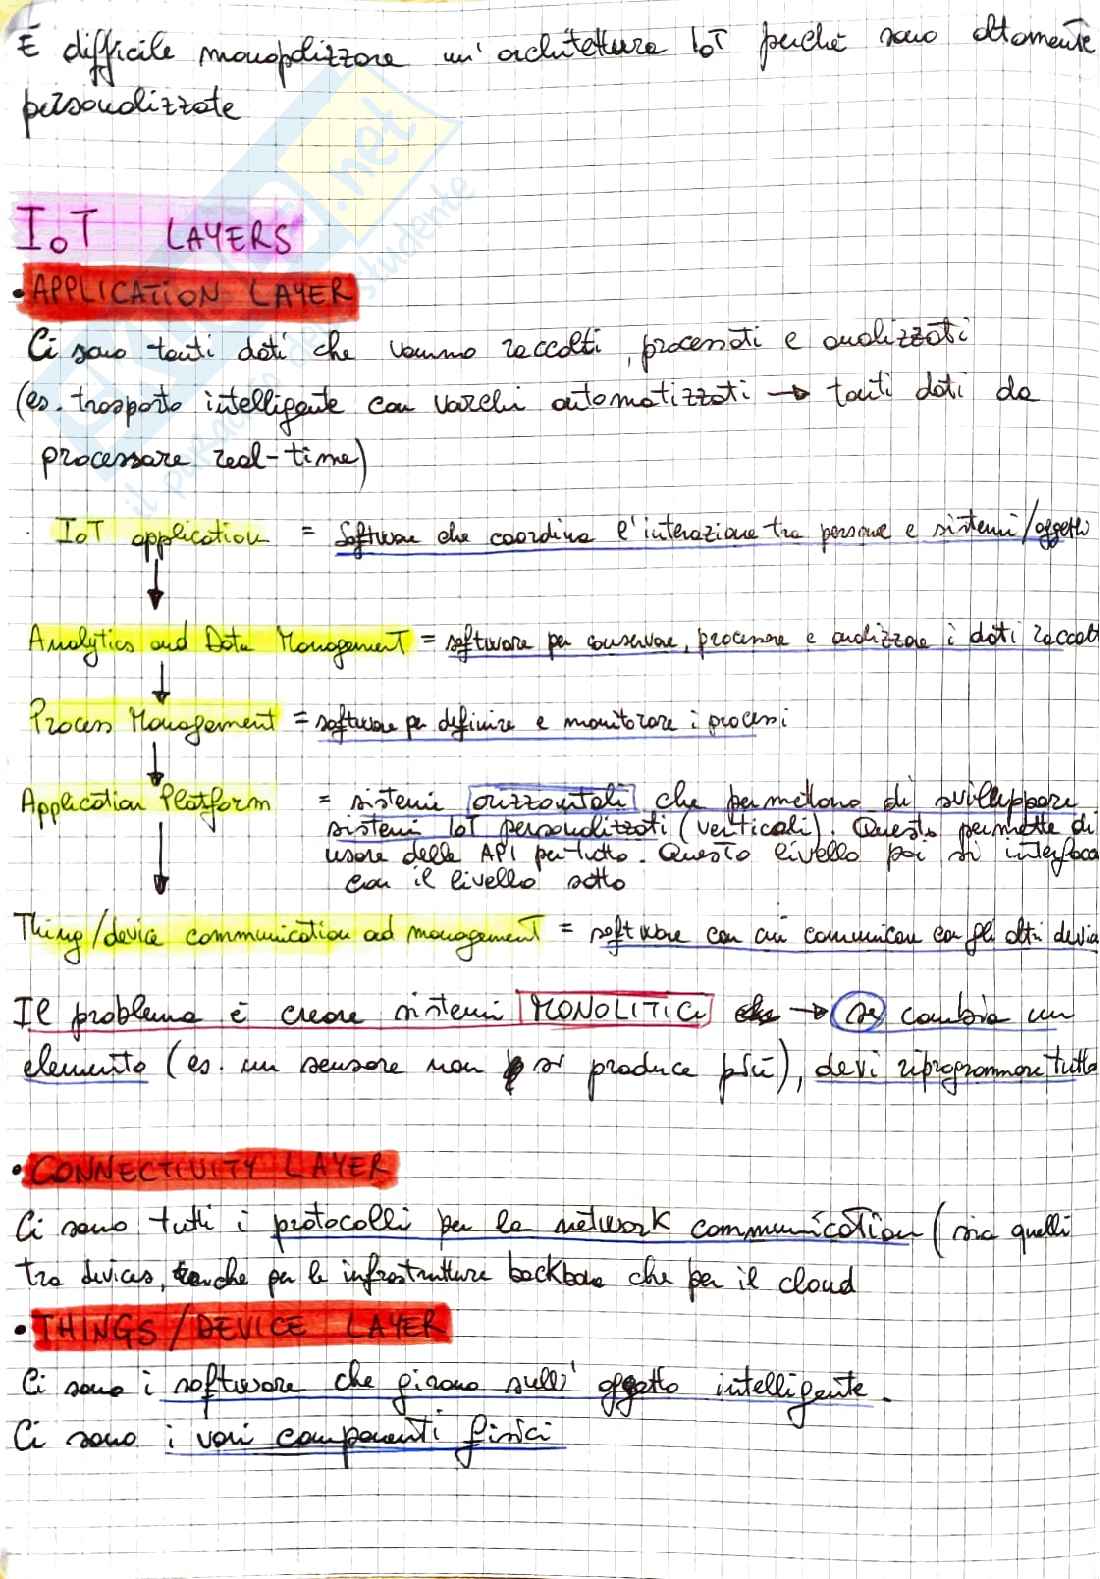 È difficile monopolizzare un'architettura IoT perché sono altamente
personalizzate
IoT LAYERS
• APPLICATION LAYER
Ci sono tanti dati che vanno raccolti, processati e analizzati
(es. trasporto intelligente con varchi automatizzati → tanti dati da
processare real-time)
IoT application = Software che coordina l'interazione tra persone e sistemi/oggetti
Analytics and Data Management = software per conservare, processare e analizzare i dati raccolti
Process Management = software per definire e monitorare i processi
Application Platform = sistemi orizzontali che permettono di sviluppare
sistemi IoT personalizzati (verticali). Questo permette di
usare delle API per tutto. Questo livello poi si interfaccia
con il livello sotto
Thing/device communication and management = software con cui comunicare con gli altri device
Il problema è creare sistemi MONOLITICI → se cambia un
elemento (es. un sensore non si produce più), devi riprogrammare tutto
• CONNECTIVITY LAYER
Ci sono tutti i protocolli per la network communication (sia quelli
tra devices, che per le infrastrutture backbone che per il cloud
• THINGS/DEVICE LAYER
Ci sono i software che girano sull'oggetto intelligente.
Ci sono i vari componenti fisici